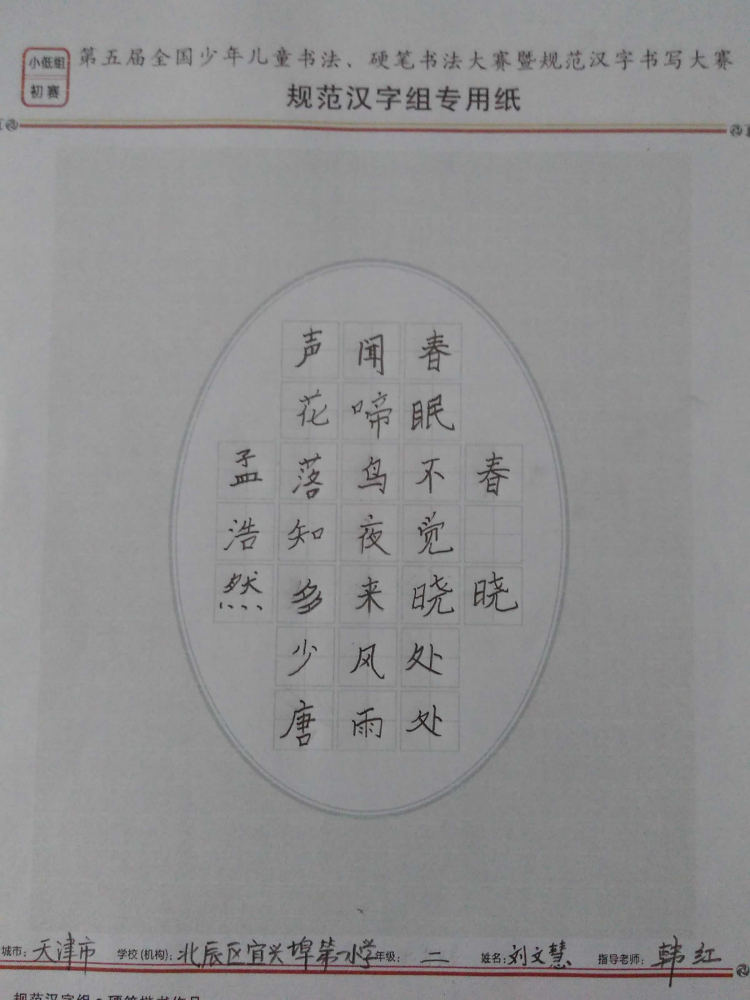 小低组
初赛
第五届全国少年儿童书法、硬笔书法大赛暨规范汉字书写大赛
规范汉字组专用纸
春晓
春眠不觉晓处处
闻啼鸟夜来风雨
声花落知多少唐
孟浩然
城市：天津市 学校(机构)：北辰区宜兴埠第一小学 年级：二 姓名：刘文慧 指导老师：韩红